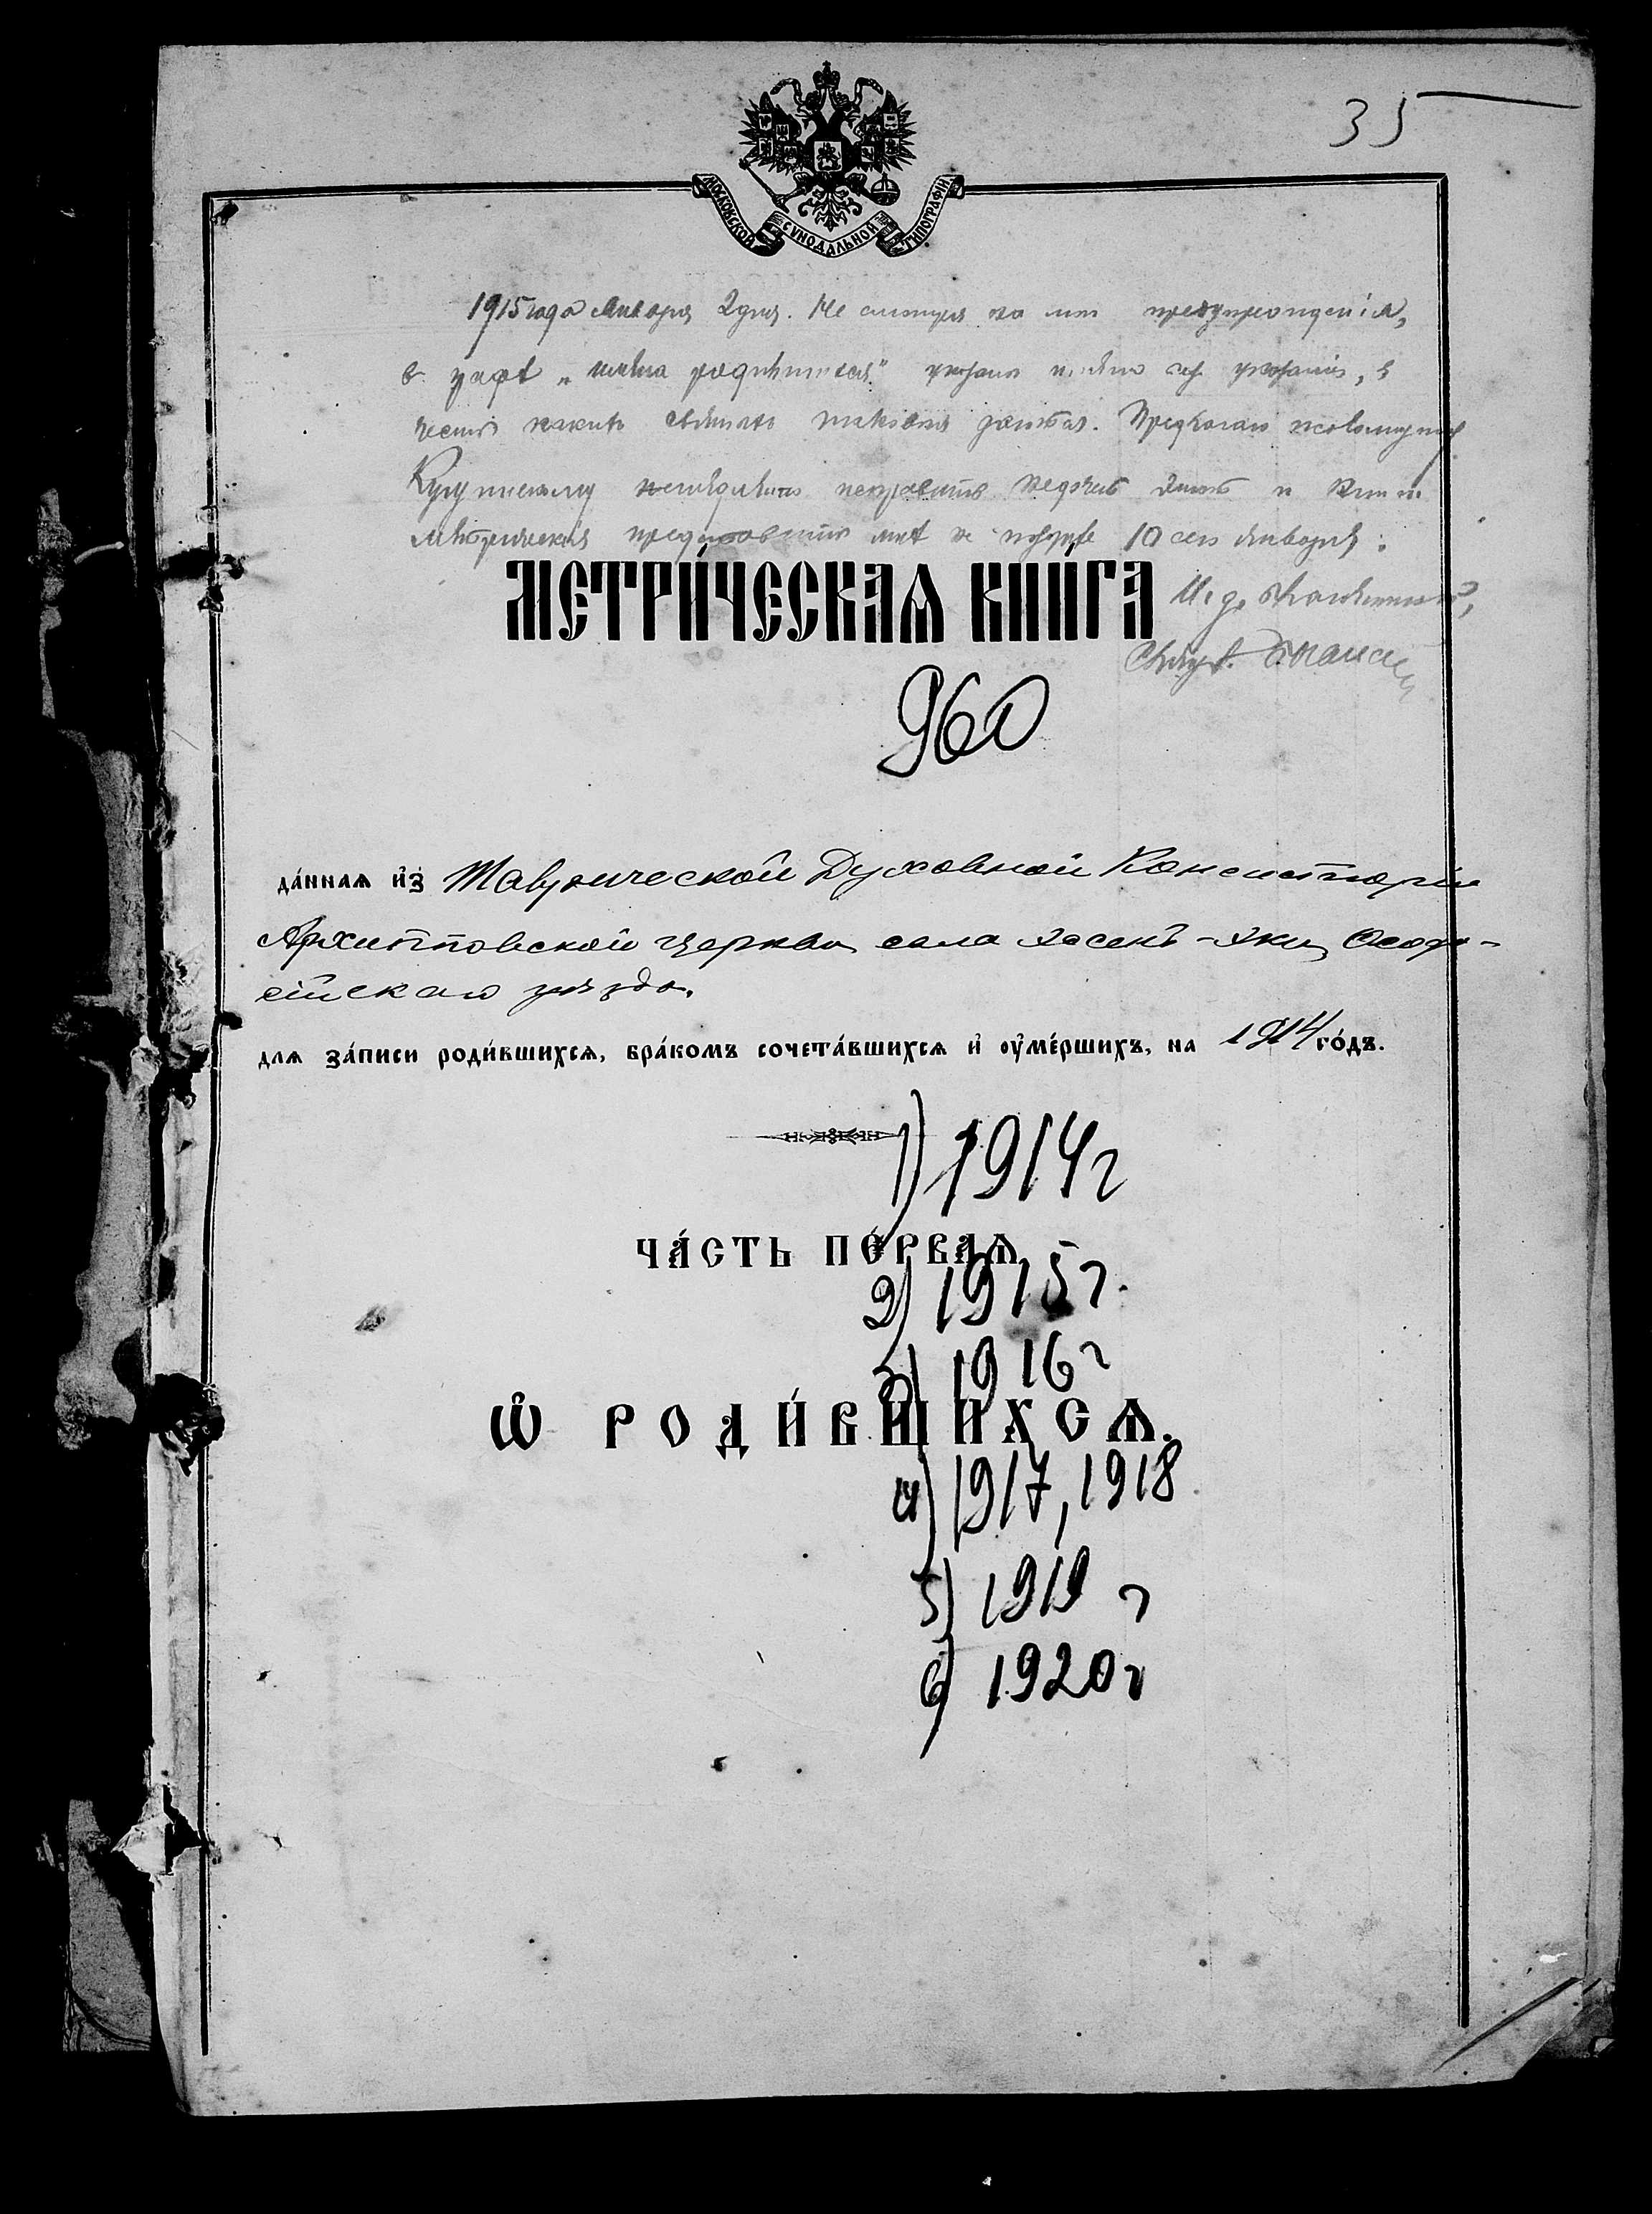 35
МОСКОВСКОЙ СѴНОДАЛЬНОЙ ТИПОГРАФІИ
1915 года Января 2 дня. Не смотря на мои предупрежденія,
в графѣ „имена родившихся" указаны имена без указанія, в
честь какихъ святыхъ таковыя даются. Предлагаю
исправить недочетъ этотъ и книги
метрическія представить мнѣ не позднѣе 10 сего января.
МЕТРИ́ЧЕСКАѦ КНИ́ГА
И. д. благочиннаго,
Свящ.
960
да́ннаѧ и҆з̾ Таврической Духовной Консисторіи
Архипповской церкви села Хасенъ-Эки, Ѳеодо-
сійскаго уѣзда.
длѧ за́писи роди́вшихсѧ, бра́комъ сочета́вшихсѧ и҆ оу҆ме́ршихъ, на 1914 го́дъ.
1) 1914 г
ЧА́СТЬ ПЕ́РВАѦ
2) 1915 г.
3) 1916 г
Ѡ҆ РОДИ́ВШИХСѦ.
4) 1917, 1918
5) 1919 г
6) 1920 г